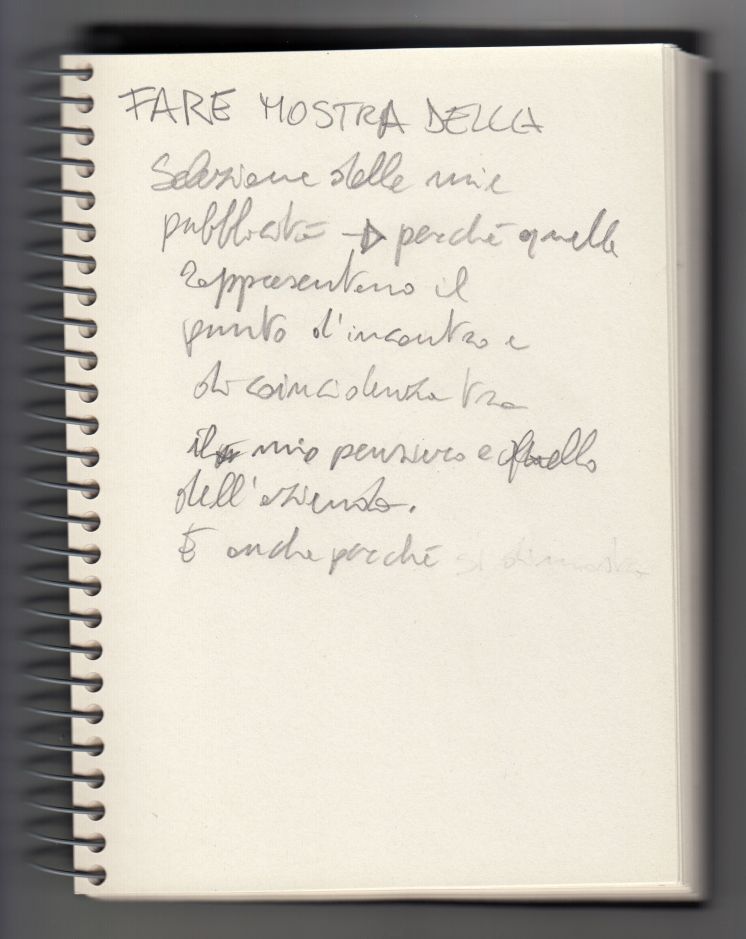 FARE MOSTRA DELLA
Selezione delle mie
pubblicità → perché quelle
rappresentano il
punto d'incontro e
di coincidenza tra
il mio pensiero e quello
dell'azienda.
E anche perché si dimostra